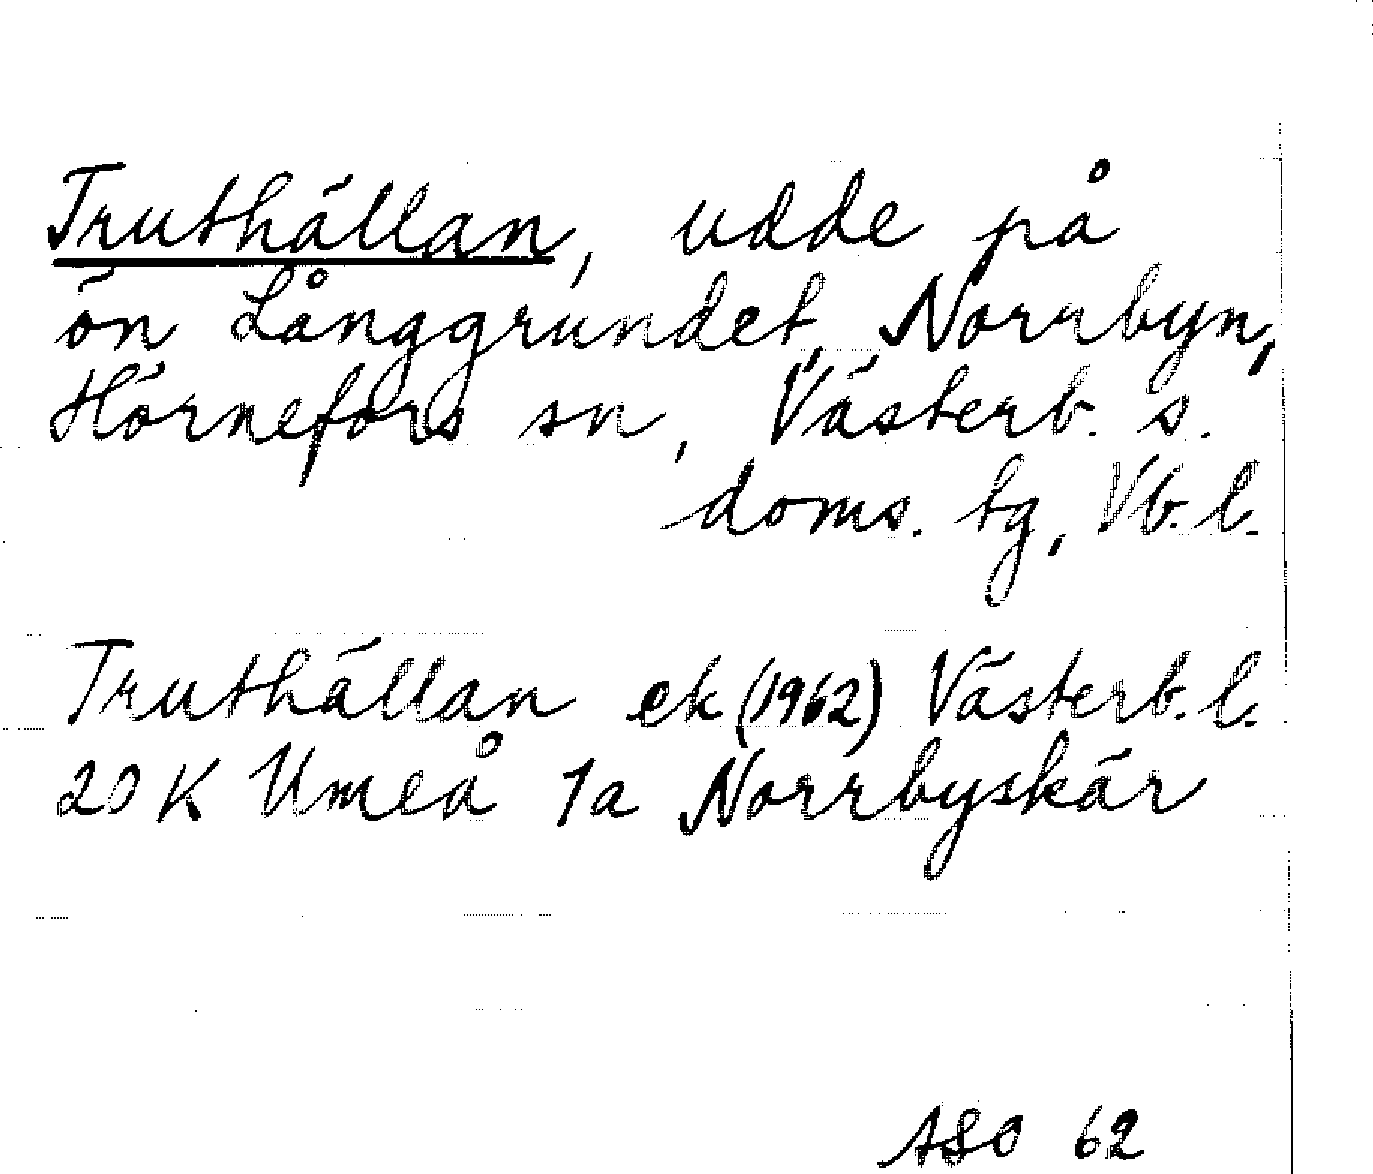 Truthällan, udde på
ön Långgrundet, Norrbyn,
Hörnefors sn, Västerb. s.
doms. tg, Vb. l.
Truthällan ek (1962) Västerb. l.
20 K Umeå 1a Norrbyskär
ASO 62